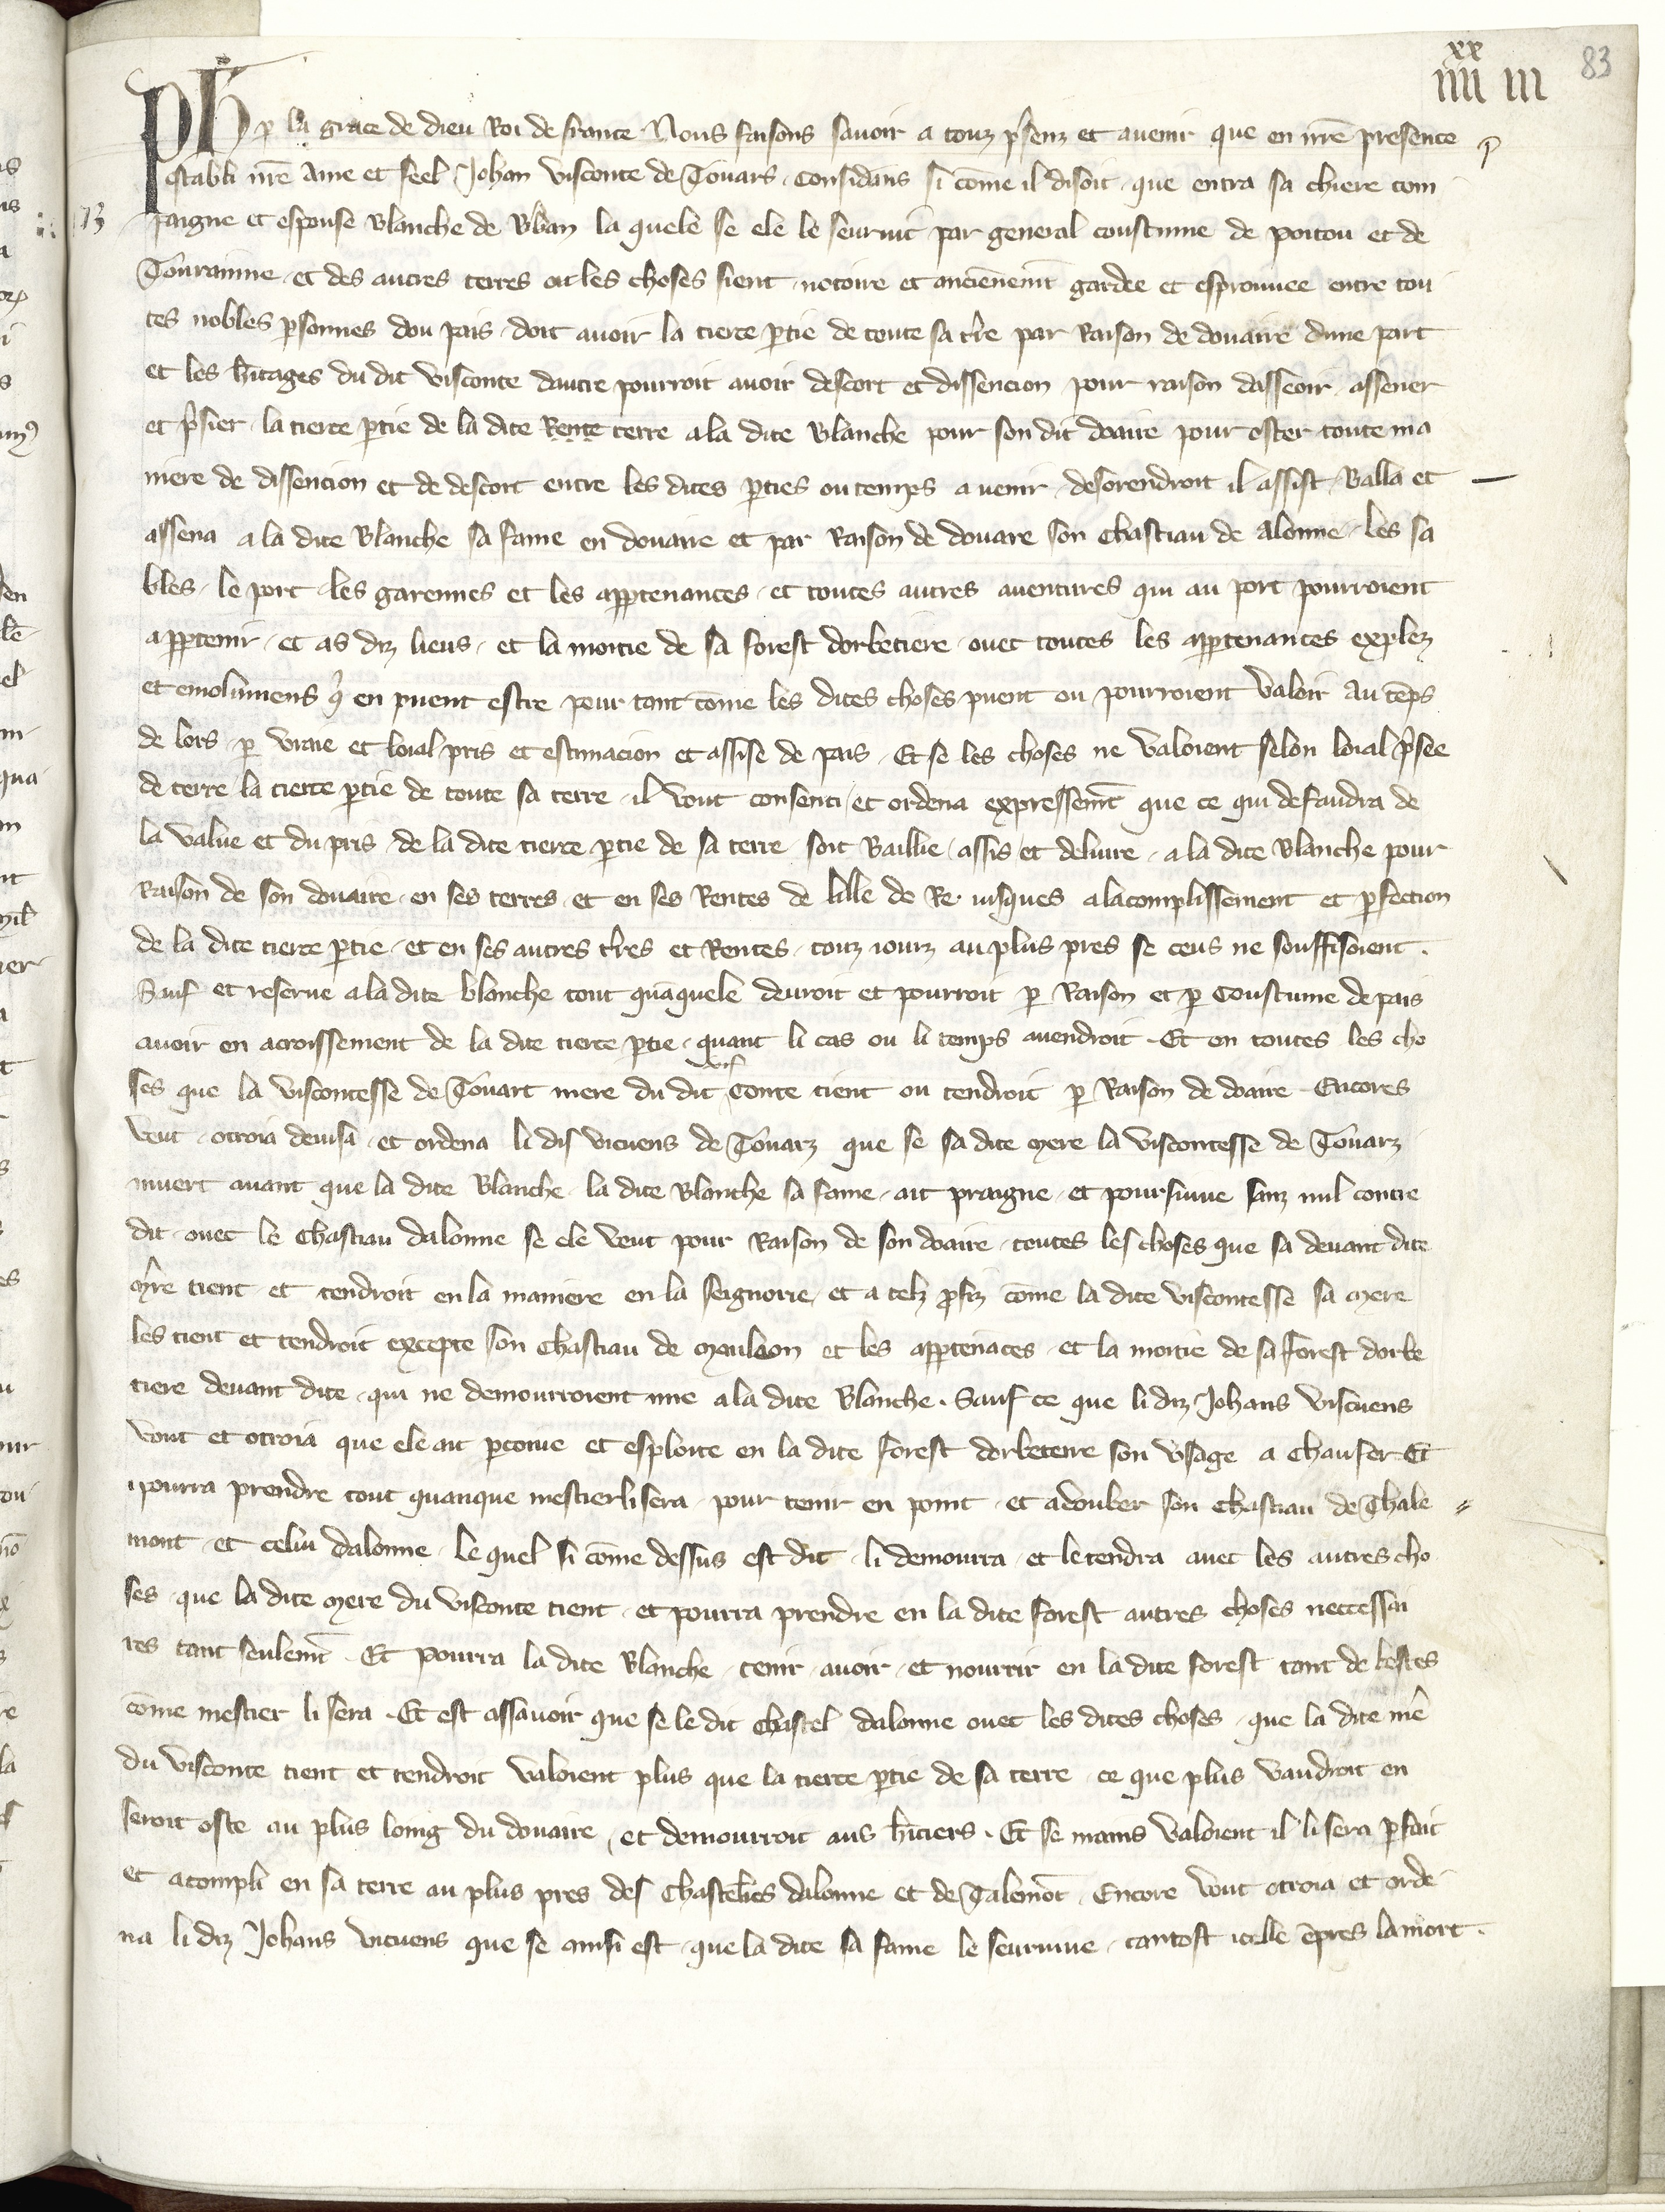 xx
iiii iii
83
Ph p la grace de dieu Roi de france Nous faisons savoir a touz psenz et avenir que en nre presence
establi nre Ame et feel Johan visconte de Touars. Considans si come il disoit que entra sa chiere com
73
paigne et espouse Blanche de Bban la quele se ele le seurvit par general coustume de poitou et de
Touraine et des autres terres ou les choses sient notoire et anciènemt gardee et esprouvee entre tou
tes nobles psonnes dou pais doit avoir la tierce ptie de toute sa tre par Raison de douaire dune part
et les hitages du dit visconte dautre pourroit avoir descort et dissencion pour raison dasseoir assener
et psier la tierce ptie de la dite Rente terre a la dite Blanche pour son dit doaire pour oster toute ma
niere de dissencion et de descort entre les dites pties ou temps a venir desorendroit il assist Bailla et
assena a la dite Blanche sa fame en douaire et par Raison de douare son Chastiau de Alonne les sa
bles le port les garennes et les apptenances et toutes autres aventures qui au port pourroient
apptenir et as diz lieus et la moitie de sa forest dorbetiere ovec toutes les apptenances explez
et emolumens q en puent estre pour tant come les dites choses puent ou pourroient valoir au teps
de lors p vraie et loial pris et estimacion et assise de pais Et se les choses ne valoient selon loial psee
de terre la tierce ptie de toute sa terre il vout consenti et ordena expressemt que ce qui defaudra de
la value et du pris de la dite tierce ptie de sa terre soit Baillie assis et delivre a la dite Blanche pour
Raison de son douaire en ses terres et en ses Rentes de lille de Re jusques a lacomplissement et pfection
de la dite tierce ptie et en ses autres tres et Rentes touz jourz au plus pres se ceus ne souffisoient.
Sauf et reserve a la dite blanche tout quaquele devroit et pourroit p Raison et p Coustume de pais
avoir en acroissement de la dite tierce ptie quant li cas ou li temps avendroit Et en toutes les cho
ses que la viscontesse de Touart mere du dit vis Conte tient ou tendroit p Raison de doaire Encores
veut otroia devisa et ordena li dis vicuens de Touarz que se sa dite mere la viscontesse de Touarz
muert avant que la dite Blanche la dite Blanche sa fame ait praigne et poursuive sanz nul contre
dit ovec le Chastiau dalonne se ele veut pour Raison de son doaire toutes les choses que sa devant dite
mre tient et tendroit en la maniere en la seignorie et a telz pfiz come la dite viscontesse sa mere
les tient et tendroit excepte son Chastiau de mauleon et les apptenaces et la moitie de sa forest dorbe
tiere devant dite qui ne demourroient mie a la dite Blanche. Sauf ce que li diz Johans viscuens
vout et otroia que ele ait pcoive et esploite en la dite forest dorbeteire son usage a Chaufer Et
i pourra prendre tout quanque mestier li sera pour tenir en point et adouber son Chastiau de Thale
mont et celui dalonne le quel si come dessus est dit li demourra et le tendra avec les autres cho
ses que la dite mere du visconte tient et pourra prendre en la dite forest autres choses neccessai
res tant seulemt Et pourra la dite Blanche tenir avoir et nourrir en la dite forest tant de bestes
come mestier li sera Et est assavoir que se le dit Chastel dalonne ovec les dites choses que la dite me
du visconte tient et tendroit valoient plus que la tierce ptie de sa terre ce que plus vaudroit en
seroit oste au plus loing du douaire et demourroit aus hitiers. Et se mains valoient il li sera pfait
et acompli en sa terre au plus pres des Chastelies dalonne et de Talemot Encore vout otroia et orde
na li diz Johans vicuens que se ainsi est que la dite sa fame le seurvive tantost icelle epres la mort.